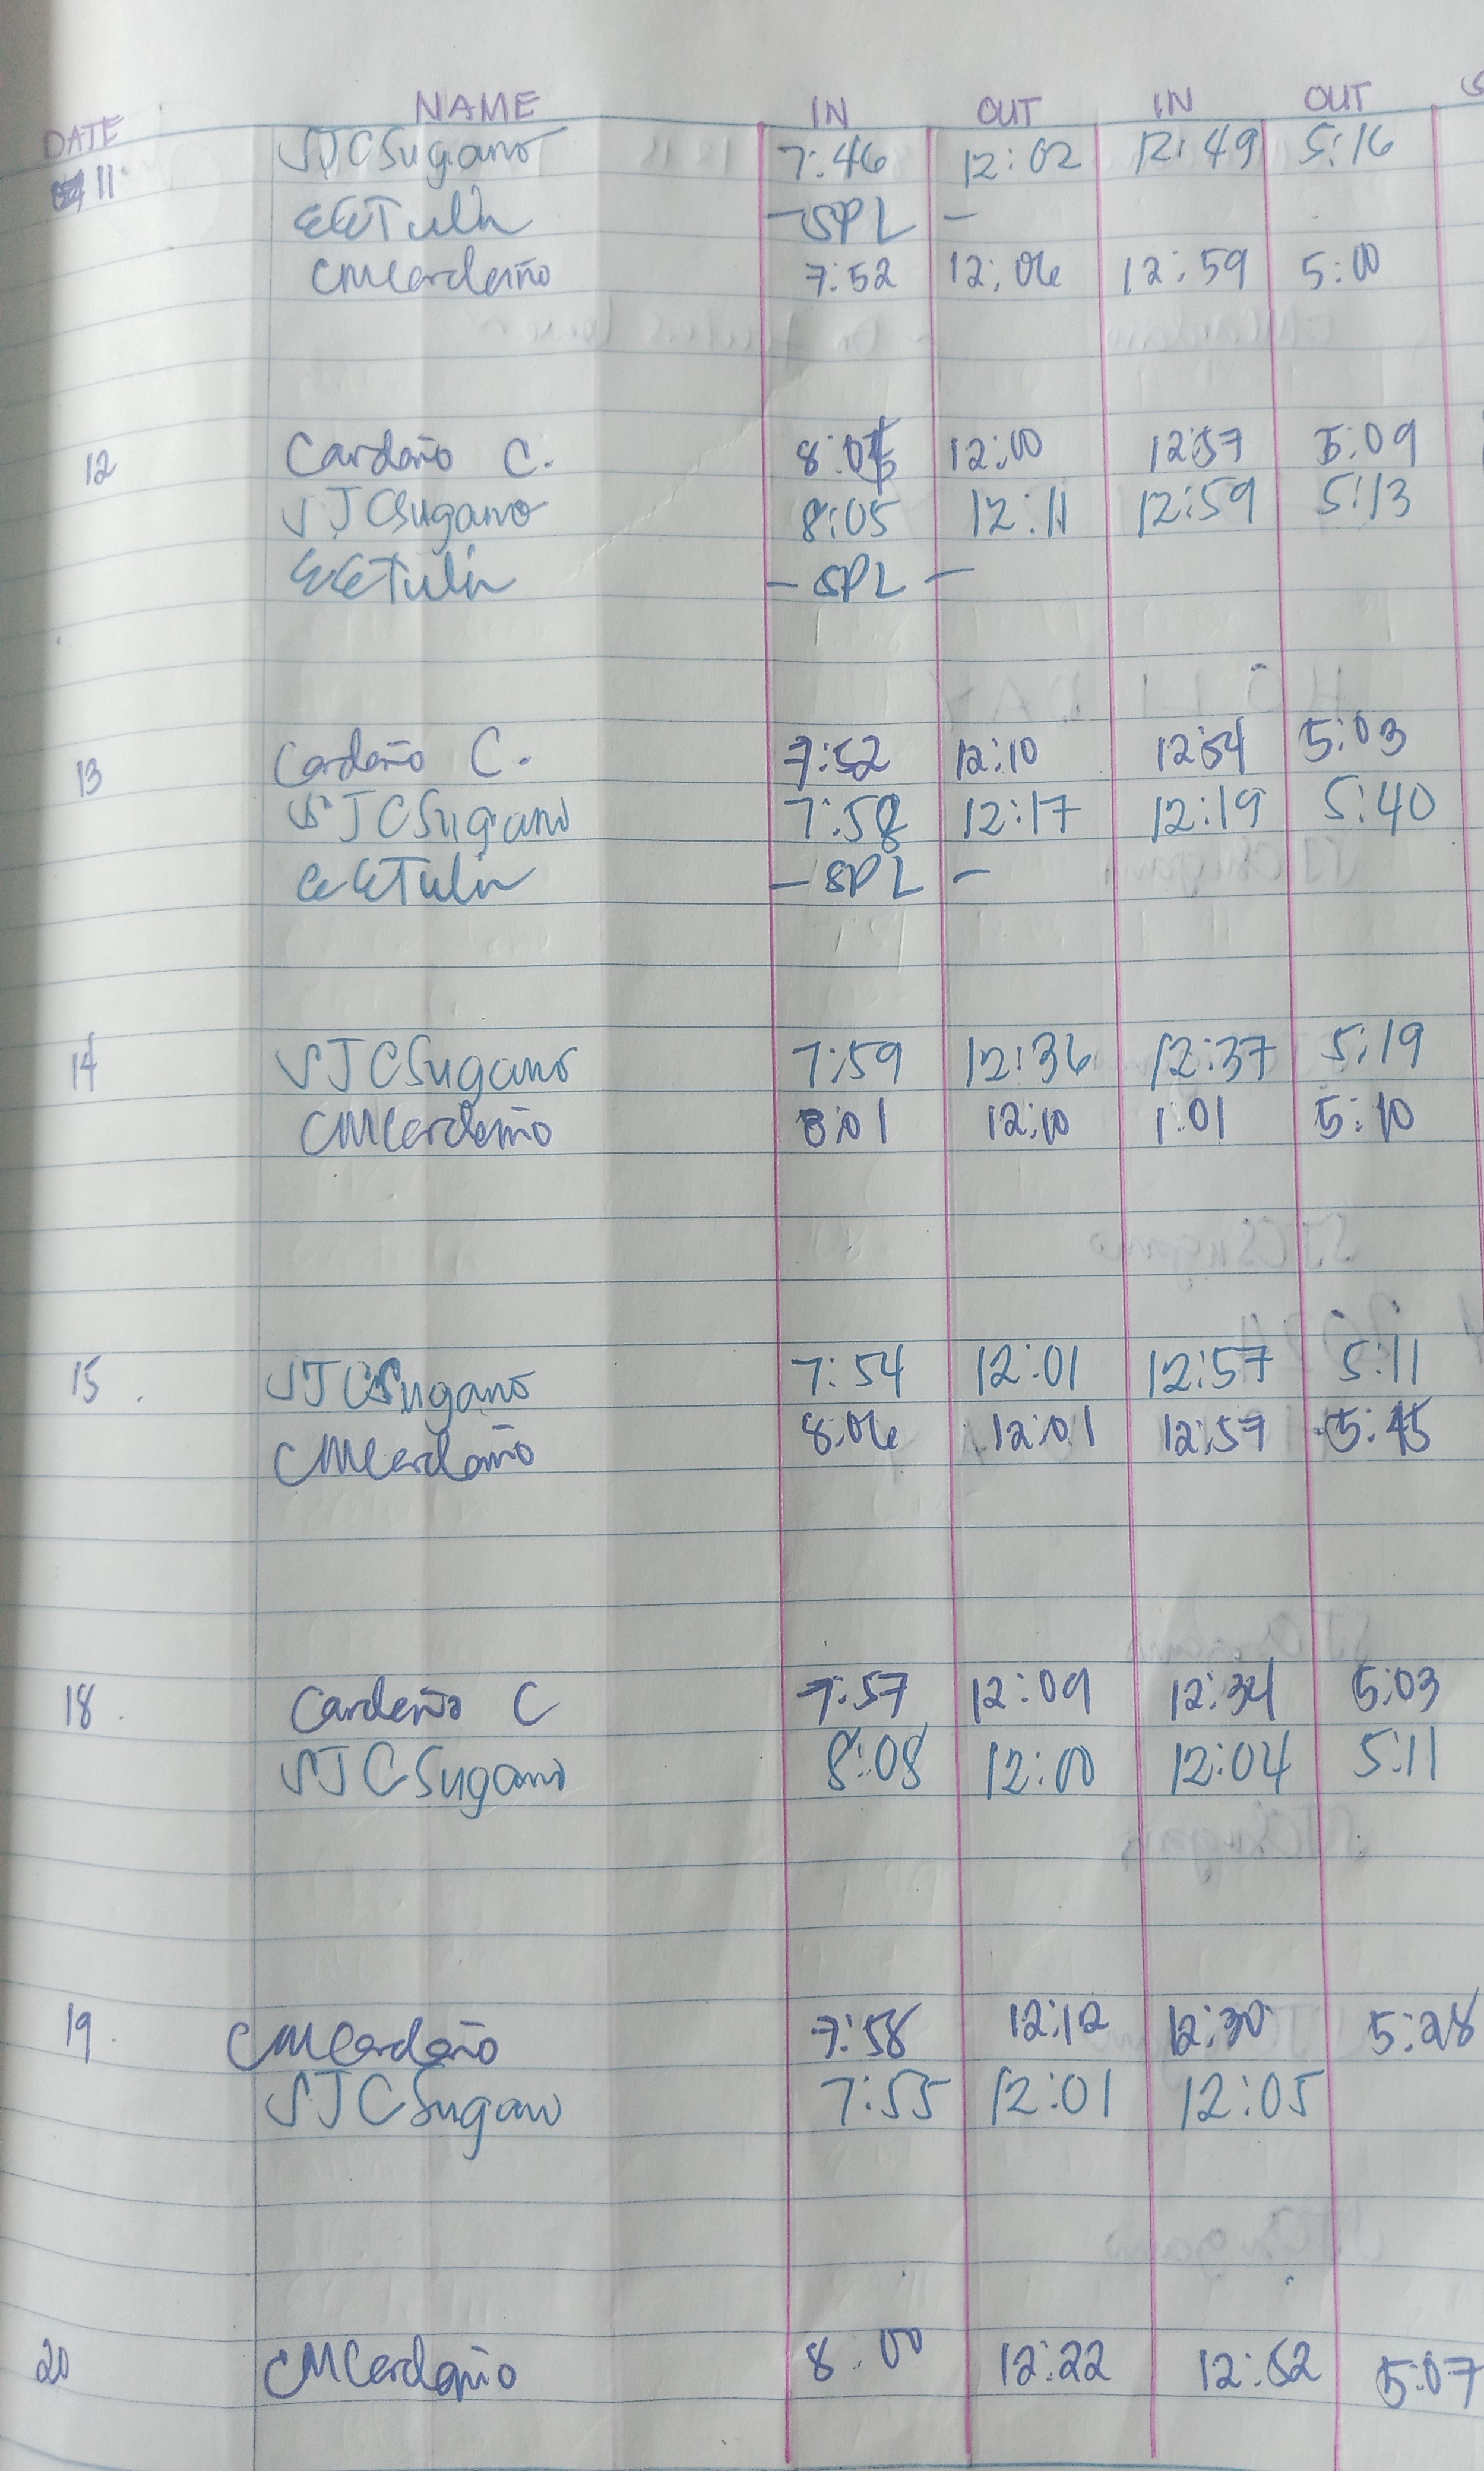 DATE NAME IN OUT IN OUT
11 SJCSugano 7:46 12:02 12:49 5:16
EETulin - SPL -
CMCardeño 7:52 12:06 12:59 5:00
12 Cardeño C. 8:05 12:00 12:57 5:09
SJCSugano 8:05 12:11 12:59 5:13
EETulin - SPL -
13 Cardeño C. 7:52 12:10 12:54 5:03
SJCSugano 7:58 12:17 12:19 5:40
EETulin - SPL -
14 SJCSugano 7:59 12:36 12:37 5:19
CMCardeño 8:01 12:10 1:01 5:10
15 SJCSugano 7:54 12:01 12:57 5:11
CMCardeño 8:06 12:01 12:57 5:45
18 Cardeño C 7:57 12:09 12:34 5:03
SJCSugano 8:08 12:00 12:04 5:11
19 CMCardeño 7:58 12:12 12:30 5:28
SJCSugano 7:55 12:01 12:05
20 CMCardeño 8:00 12:22 12:52 5:07